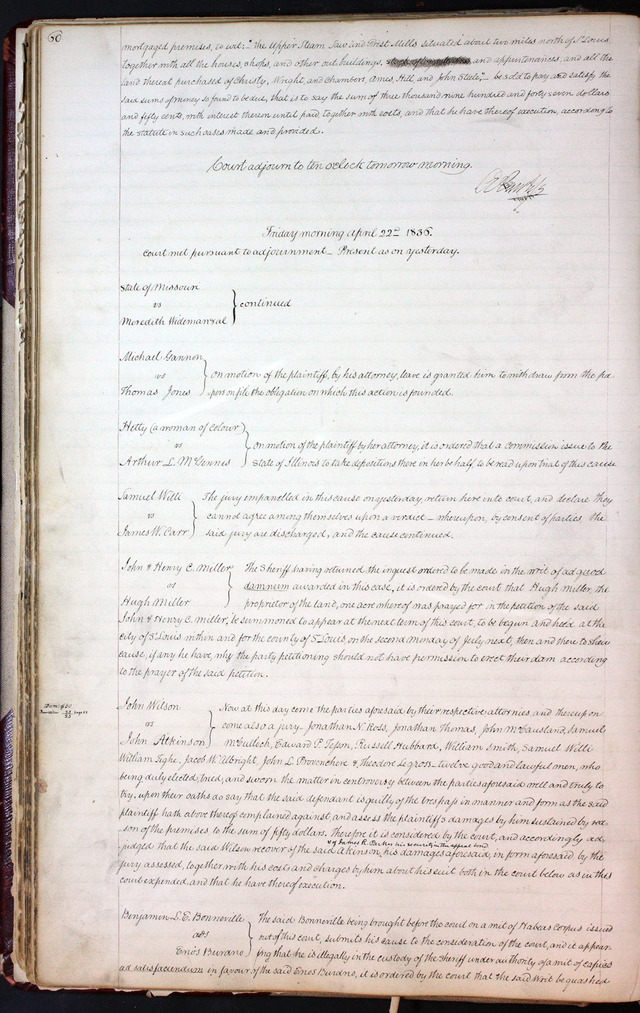 60
mortgaged premises, to wit: "the Upper Steam Saw and Grist Mills situated about two miles north of St Louis
together with all the houses, shops, and other out buildings, and appurtenances, and all the
land thereat purchased of Christy, Wright, and Chambers, Ames, Hill, and John Steele," be sold to pay and satisfy the
said sums of money so found to be due, that is to say the sum of three thousand nine hundred and forty seven dollars
and fifty cents, with interest thereon until paid together with costs, and that he have thereof execution, according to
the statute in such cases made and provided.
Court adjourn to ten o'clock tomorrow morning.
Friday morning April 22nd 1836.
Court met pursuant to adjournment — Present as on yesterday.
State of Missouri
vs } continued
Meredith Wideman & al
Michael Gannon
vs } on motion of the plaintiff, by his attorney, leave is granted him to withdraw from the pa-
Thomas Jones pers on file the obligation on which this action is founded.
Hetty (a woman of colour)
vs } on motion of the plaintiff by her attorney, it is ordered that a commission issue to the
Arthur L. McGinnes State of Illinois to take depositions there in her behalf, to be read upon trial of this cause
Samuel Willi The jury empanelled in this cause on yesterday, return here into court, and declare they
vs } cannot agree among themselves upon a verdict — whereupon, by consent of parties, the
James W. Carr said jury are discharged, and the cause continued.
John & Henry C. Miller The Sheriff having returned the inquest ordered to be made in the writ of ad quod
vs } damnum awarded in this case, it is ordered by the court that Hugh Miller, the
Hugh Miller proprietor of the land, one acre whereof was prayed for in the petition of the said
John & Henry C. Miller, be summoned to appear at the next term of this court, to be begun and held at the
city of St Louis within and for the county of St Louis, on the second Monday of July next, then and there to shew
cause, if any he have, why the party petitioning should not have permission to erect their dam according
to the prayer of the said petition.
John Wilson Now at this day come the parties aforesaid by their respective attornies, and thereupon
vs } come also a jury. Jonathan N. Ross, Jonathan Thomas, John McCausland, Samuel
John Atkinson McCulloch, Edward P. Tesson, Russell Hubbard, William Smith, Samuel Willi
William Tighe, Jacob W. Albright, John L. Provenchere & Theodor Legross — twelve good and lawful men, who
being duly elected, tried, and sworn the matter in controversy between the parties aforesaid well and truly to
try, upon their oaths do say that the said defendant is guilty of the trespass in manner and form as the said
plaintiff hath above thereof complained against and assess the plaintiff's damages by him sustained by rea-
son of the premises to the sum of fifty dollars. Therefore it is considered by the court, and accordingly ad-
& James R. his security in the appeal bond
judged that the said Wilson recover of the said Atkinson, his damages aforesaid, in form aforesaid by the
jury assessed, together with his costs and charges by him about his suit both in the court below as in this
court expended and that he have thereof execution.
Benjamin L. E. Bonneville The said Bonneville being brought before the court on a writ of Habeas Corpus issued
ads } out of this court, submits his cause to the consideration of the court, and it appear-
Enos Burdno ing that he is illegally in the custody of the Sheriff under authority of a writ of capias
ad satisfaciendum in favour of the said Enos Burdno, it is ordered by the court that the said writ be quashed